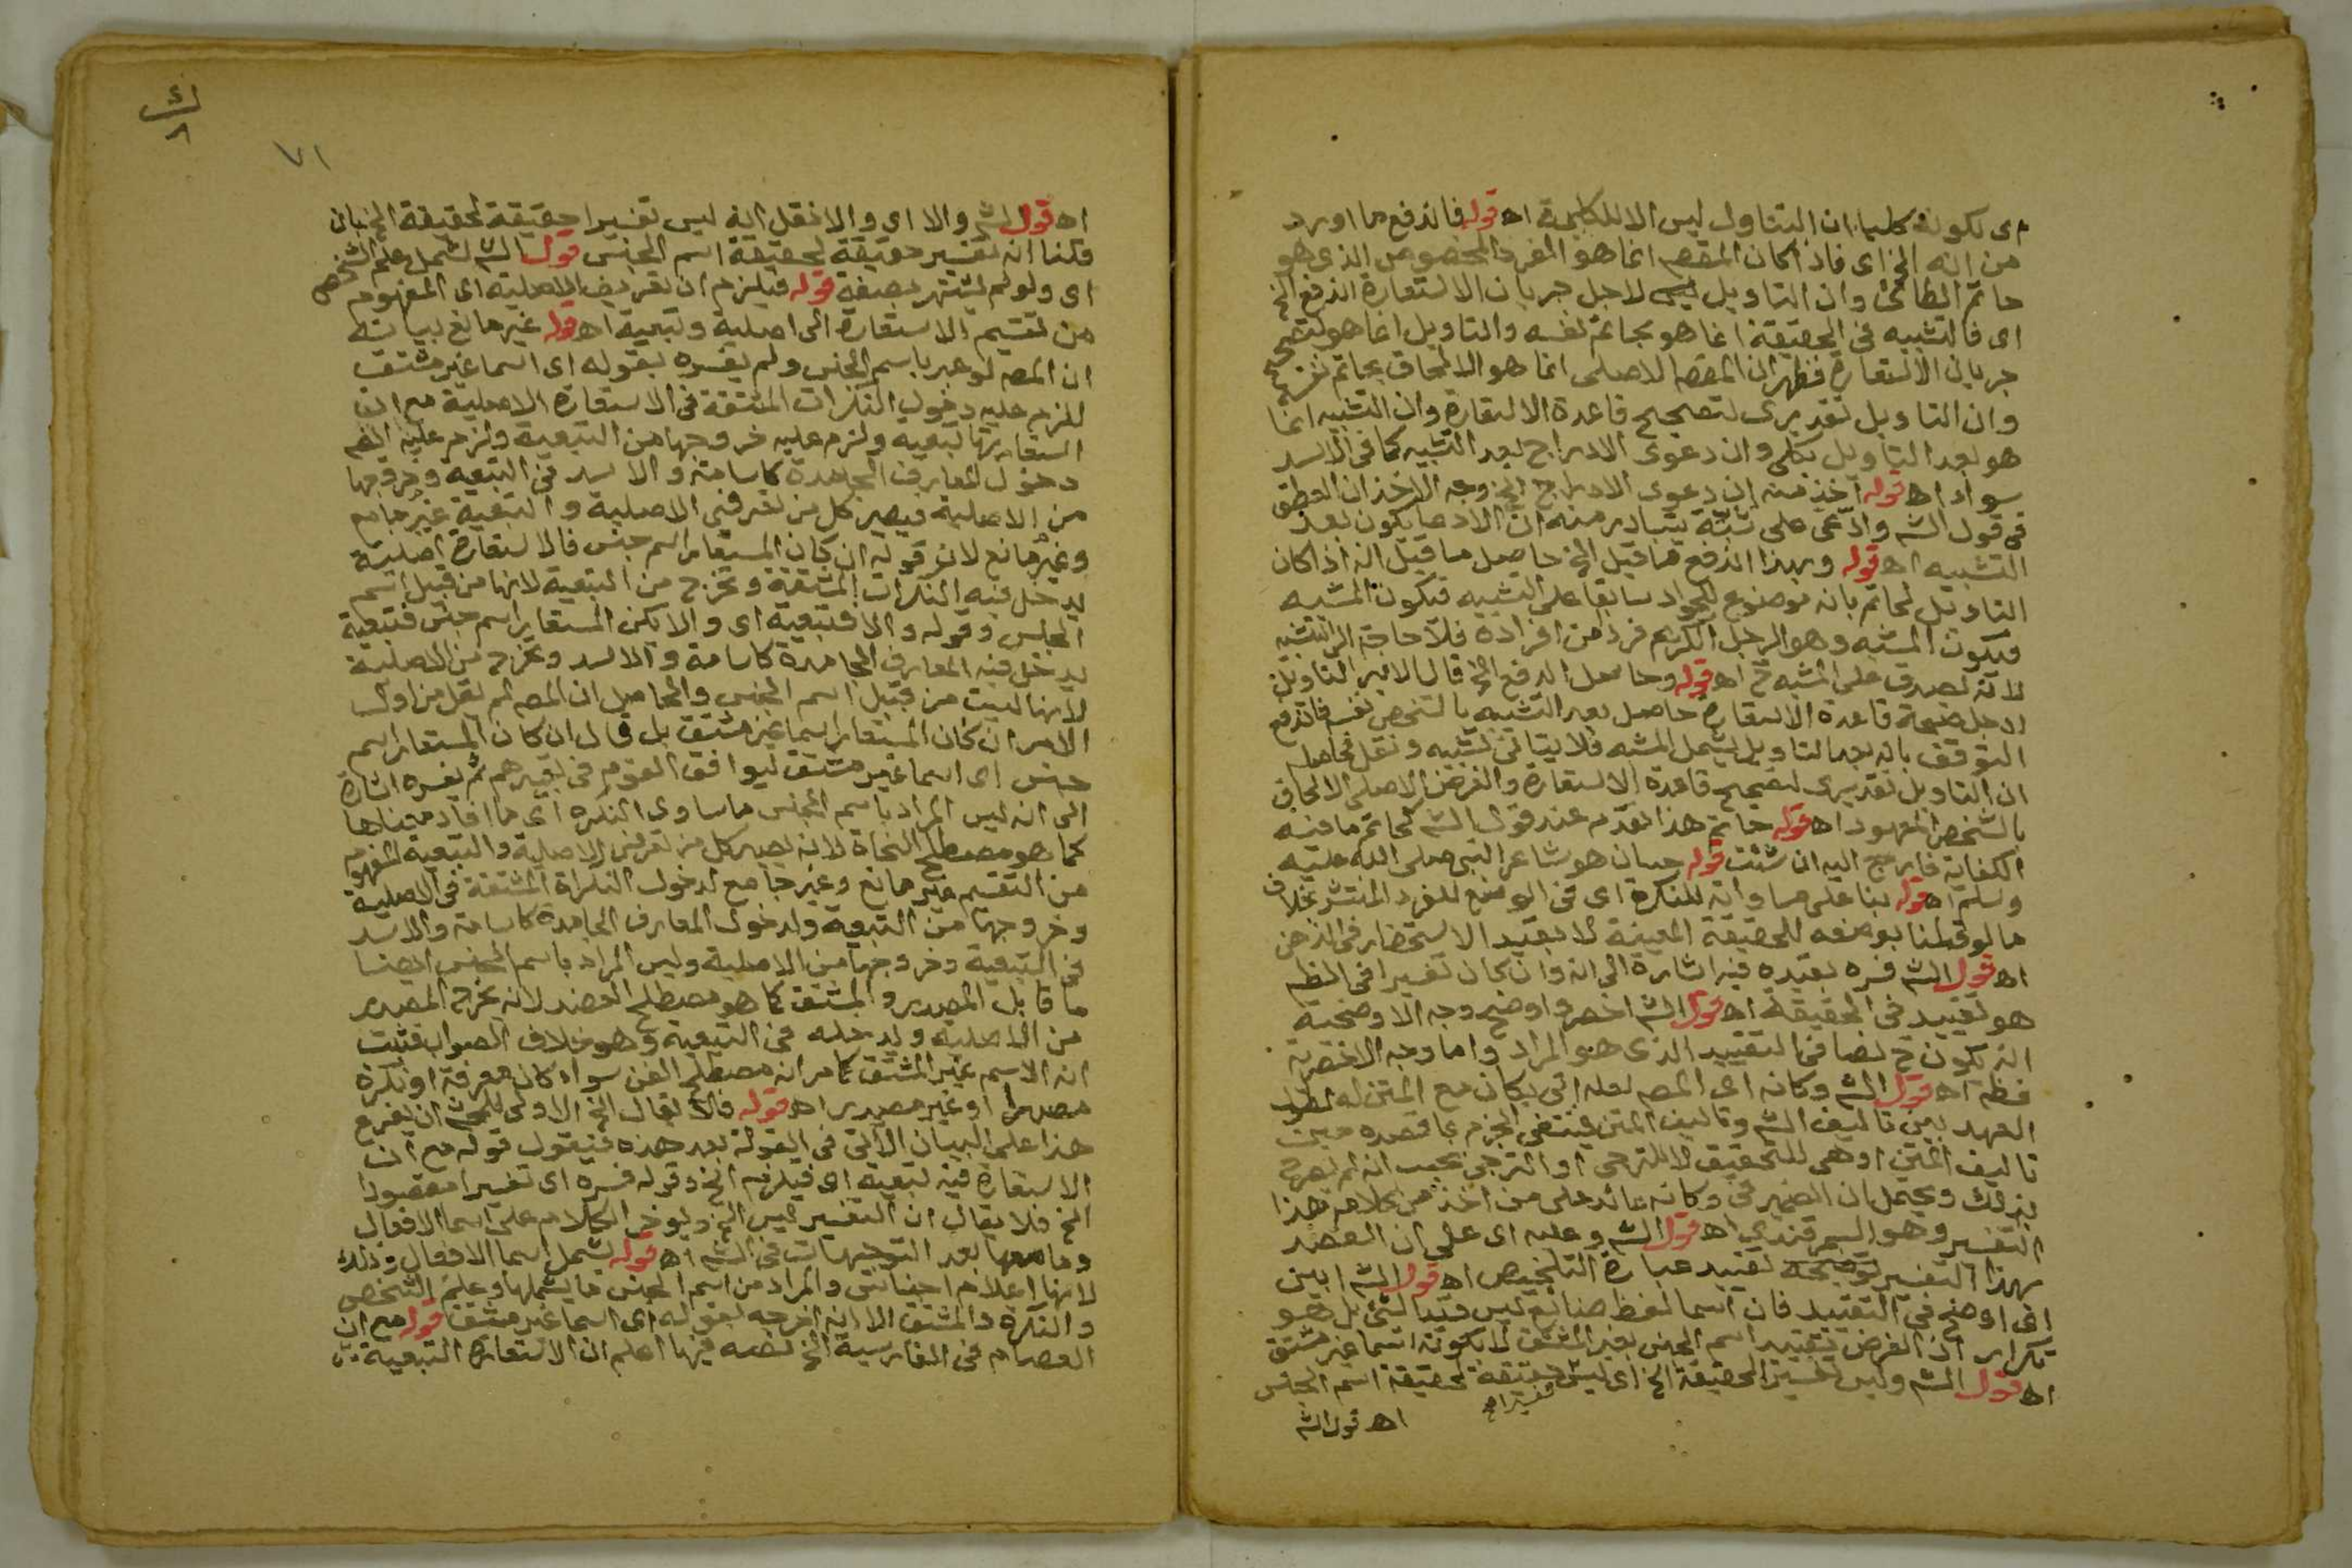 اى بكونه كليا ان التناول ليس الا للكلية اه قوله فاندفع ما اورد
من انه الخ اى فاذا كان المقصم انما هو الفرد المخصوص الذى هو
حاتم الطائى وان التاويل ليس لاجل جريان الاستعارة اندفع الخ
اى فالتشبيه فى الحقيقة انما هو بحاتم نفسه والتاويل انما هو لتصحيح
جريان الاستعارة فظهر ان المقصم الاصلى انما هو الالحاق بحاتم نفسه
وان التاويل تقديرى لتصحيح قاعدة الاستعارة وان التشبيه انما
هو بعد التاويل بكلى وان دعوى الادراج بعد التشبيه كما فى الاسد
سواء اه قوله اخذ منه ان دعوى الادراج الخ وجه الاخذ ان العطف
فى قول الشم وادّعى على شبّه يتبادر منه ان الادعا يكون بعد
التشبيه اه قوله وبهذا اندفع ما قيل الخ حاصل ما قيل انه اذا كان
التاويل لحاتم بانه موضوع للجواد سابقا على التشبيه فيكون المشبه
فيكون المشبه وهو الرجل الكريم فرد من افراده فلا حاجة الى التشبيه
لانه يصدق على المشبه ح اه قوله وحاصل الدفع الخ قال الامير التاويل
لاجل صحة قاعدة الاستعارة حاصل بعد التشبيه بالشخص نفسه فاندفع
التوقف بانه بعد التاويل يشمل المشبه فلا يتاتى تشبيه ونقل
ان التاويل تقديرى لتصحيح قاعدة الاستعارة والغرض الاصلى الالحاق
بالشخص المعهود اه قوله حاتم هذا تقدم عند قول الشم كحاتم ما فيه
الكفاية فارجع اليه ان شئت قوله حسان هو شاعر النبى صلى الله عليه
وسلم اه قوله بنا على مساواته للنكرة اى فى الوضع للفرد المنتشر بخلاف
ما لو قلنا بوضعه للحقيقة المعينة لا بقيد الاستحضار فى الذهن
اه قول الشم فسره بقيده فيه اشارة الى انه وان كان تفسيرا فى النظم
هو تقييد فى الحقيقة اه قول الشم اخصر واوضح وجه الاوضحية
انه يكون ح نصا فى التقييد الذى هو المراد واما وجه الاخصرية
فظم اه قول الشم وكانه اى المصم لعله اتى بكان مع المتن له لطول
العهد بين تاليف الشم وتاليف المتن فينتفى الجزم بما قصده حين
تاليف المتن او هى للتحقيق لا للترجى او الترجى بحسب انه لم يصرح
بذلك ويحتمل ان الضمير فى وكانه عائد على من اخذ من كلامه هذا
التفسير وهو السمرقندى اه قول الشم وعليه اى على ان القصد
بهذا التفسير توضيحه تقييد عبارة التلخيص اه قول الشم ابين
اى اوضح فى التقييد فان اسما لفظ ضائع ليس قيدا لشئ بل هو
تكرار اذ الغرض تقييد اسم الجنس بغير المشتق لا بكونه اسما غير مشتق
اه قول الشم وليس تفسير الحقيقة الخ اى ليس حقيقة لحقيقة اسم الجنس
تفسيرا صح
اه قول الشم
٧١
اه قول الشم والا اى والا نقل انه ليس تفسيرا حقيقة لحقيقة الخ بان
قلنا انه تفسير حقيقة لحقيقة اسم الجنس قول الشم لشمل علم الشخص
اى ولو لم يشتهر بصفة قوله فيلزم ان تعريف الاصلية اى المفهوم
من تقسيم الاستعارة الى اصلية وتبعية اه قوله غير مانع بيانه
ان المصم لو عبر باسم الجنس ولم يفسره بقوله اى اسما غير مشتق
للزم عليه دخول النكرات المشتقة فى الاستعارة الاصلية مع ان
استعارتها تبعية ولزم عليه خروجها من التبعية ولزم عليه ايضم
دخول المعارف الجامدة كاسامة والاسد فى التبعية وخروجها
من الاصلية فيصير كل من تعرفى الاصلية والتبعية غير جامع
وغير مانع لان قوله ان كان المستعار اسم جنس فالاستعارة اصلية
يدخل فيه النكرات المشتقة وتخرج من التبعية لانها من قبيل اسم
الجنس وقوله والا فتبعية اى والا يكن المستعار اسم جنس فتبعية
يدخل فيه المعارف الجامدة كاسامة والاسد وتخرج من الاصلية
لانها ليست من قبيل اسم الجنس والحاصل ان المصم لم يقل من اول
الامر ان كان المستعار اسما غير مشتق بل قال ان كان المستعار اسم
جنس اى اسما غير مشتق ليوافق القوم فى تعبيرهم ثم فسره اشارة
الى انه ليس المراد باسم الجنس ما ساوى النكرة اى ما افاد معناها
كما هو مصطلح النحاة لانه يصير كل من تعرفى الاصلية والتبعية المفهوم
من التقسيم غير مانع وغير جامع لدخول النكراة المشتقة فى الاصلية
وخروجها من التبعية ولدخول المعارف الجامدة كاسامة والاسد
فى التبعية وخروجها من الاصلية وليس المراد باسم الجنس ايضا
ما قابل المصدر والمشتق كما هو مصطلح العضد لانه يخرج المصدر
من الاصلية ويدخله فى التبعية وهو خلاف الصواب فثبت
انه الاسم غير المشتق كما مر انه مصطلح الفن سواء كان معرفة او نكرة
مصدرا او غير مصدر اه قوله فلا يقال الخ الاولى للمحشى ان يفرع
هذا على البيان الآتى فى القولة بعد هذه فيقول قوله مع ان
الاستعارة فيه تبعية اى فيلزم الخ وقوله فسره اى تفسيرا مقصودا
الخ فلا يقال ان التفسير ليس الخ ويؤخر الكلام على اسما الافعال
وما معها بعد التوجيهات فى الشم اه قوله يشمل اسما الافعال وذلك
لانها اعلام اجناس والمراد من اسم الجنس ما يشملها وعلم الشخص
والنكرة والمشتق الا انه اخرجه بقوله اى اسما غير مشتق قوله مع ان
العصام فى الفارسية الخ نصه فيها اعلم ان الاستعارة التبعية